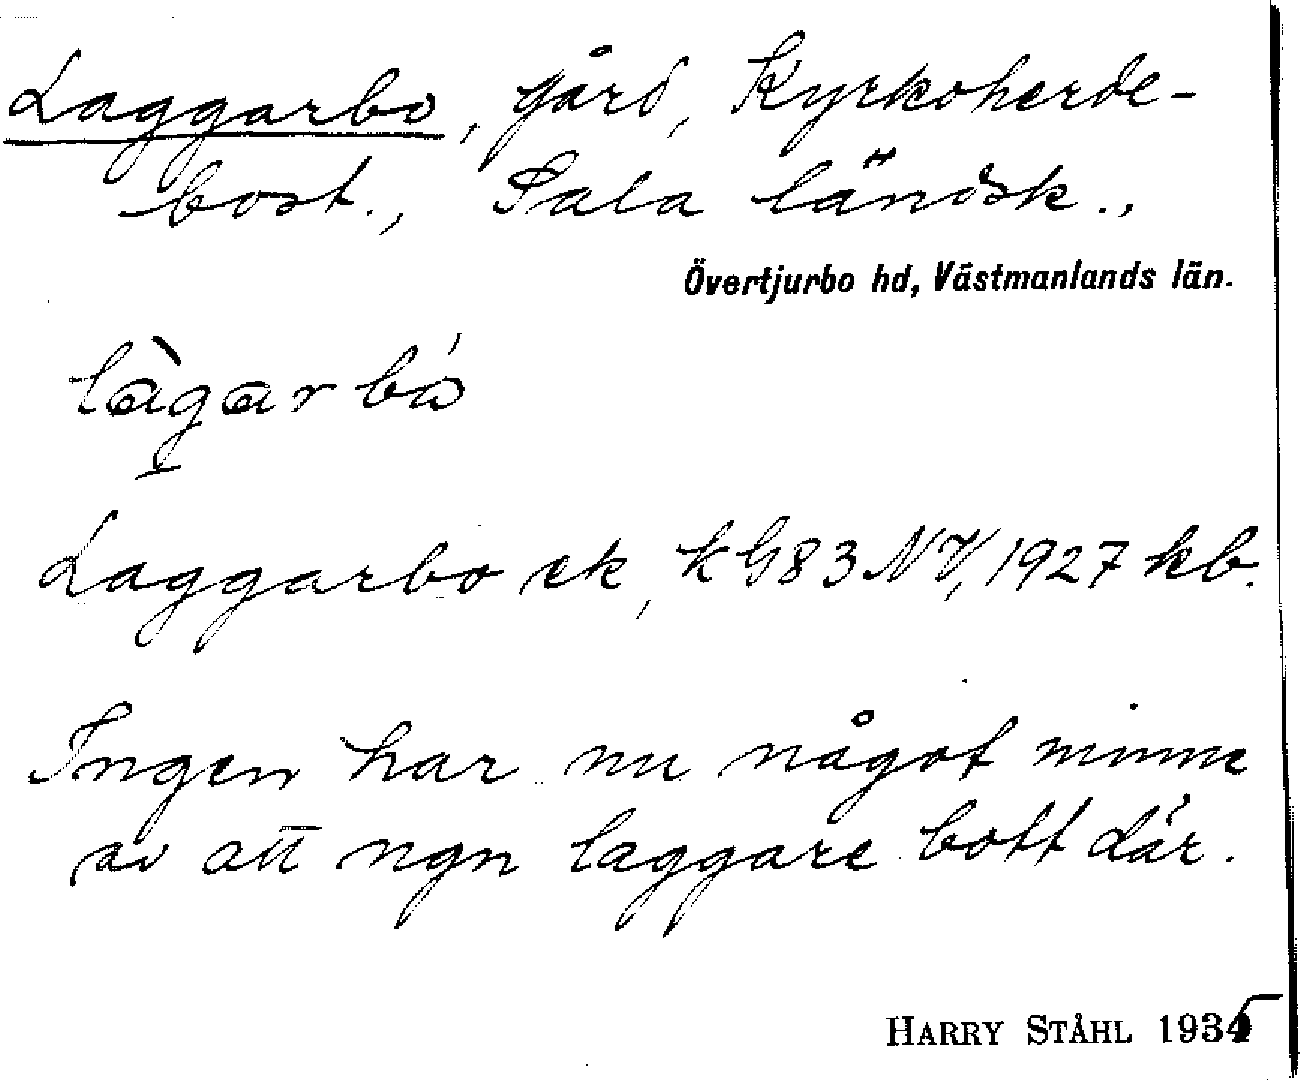 Laggarbo, gård, Kyrkoherde-
bost., Sala landsk.,
Övertjurbo hd, Västmanlands län.
làgarbó
Laggarbo ek, k G83 NV, 1927 kb.
Ingen har nu något minne
av att ngn laggare bott där.
HARRY STÅHL 1935